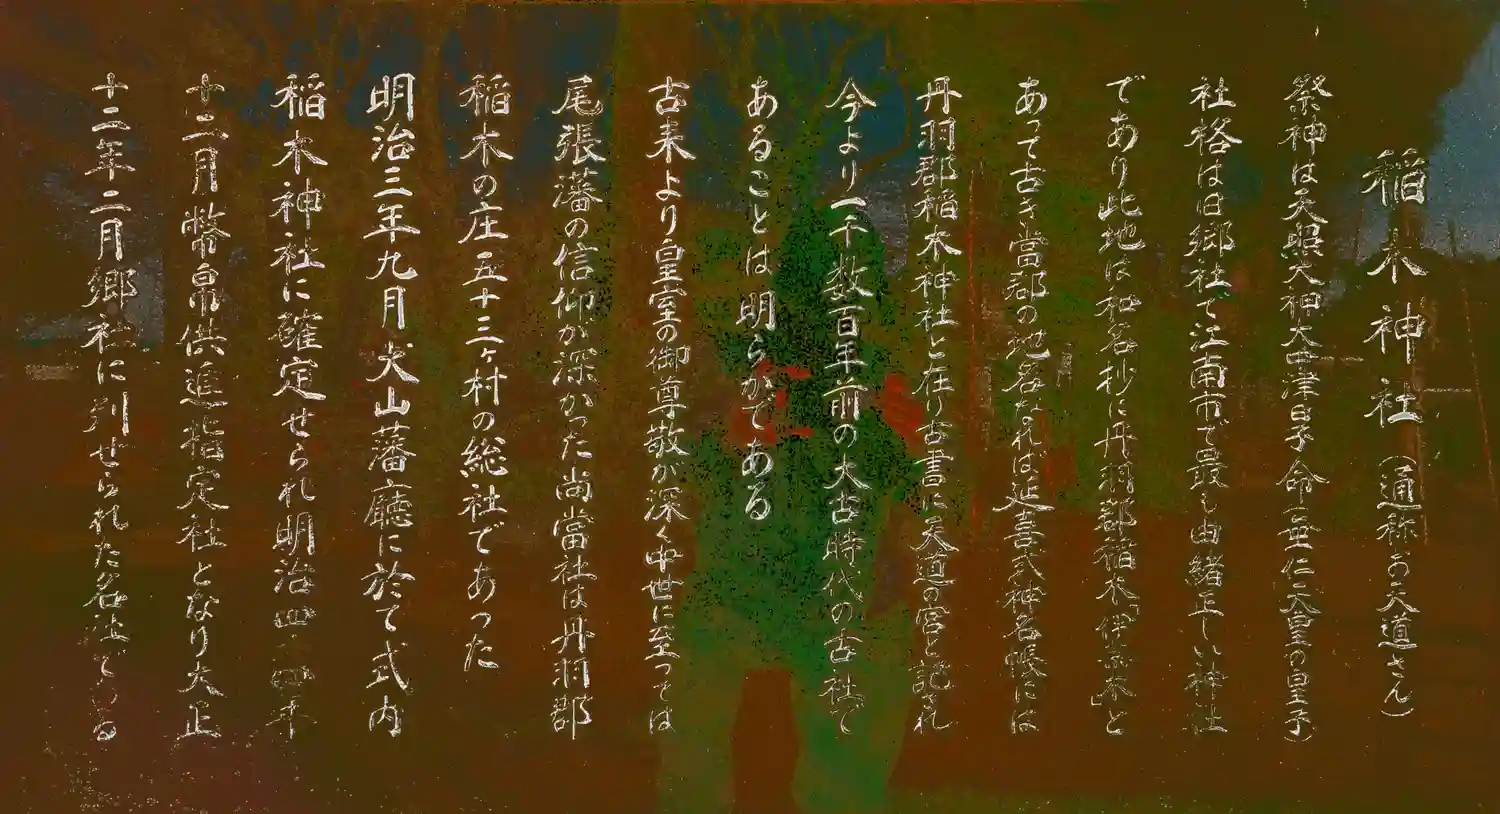 稲木神社（通称お天道さん）
祭神は天照大神大中津日子命（垂仁天皇の皇子）
社格は旧郷社で江南市で最も由緒正しい神社
であり此地は和名抄に丹羽郡稲木「伊奈木」と
あって古き當郡の地名なれば延喜式神名帳には
丹羽郡稲木神社と在り古書に天道の宮と記され
今より一千数百年前の大古時代の古社で
あることは明らかである
古来より皇室の御尊敬が深く中世に至っては
尾張藩の信仰が深かった尚當社は丹羽郡
稲木の庄五十三ヶ村の総社であった
明治三年九月犬山藩廳に於て式内
稲木神社に確定せられ明治四十四年
十二月幣帛供進指定社となり大正
十二年二月郷社に列せられた名社である